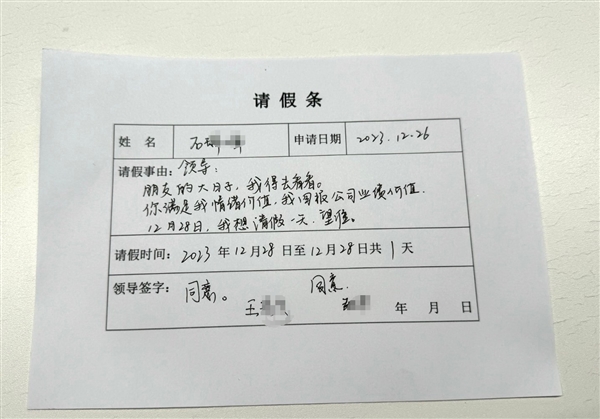 请假条
姓 名 石 申请日期 2023.12.26
请假事由：领导：
朋友的大日子，我得去看看。
你满足我情绪价值，我回报公司业绩价值.
12月28日，我想请假一天，望准。
请假时间：2023年12月28日至12月28日共1天
领导签字：同意。 同意.
王 年 月 日